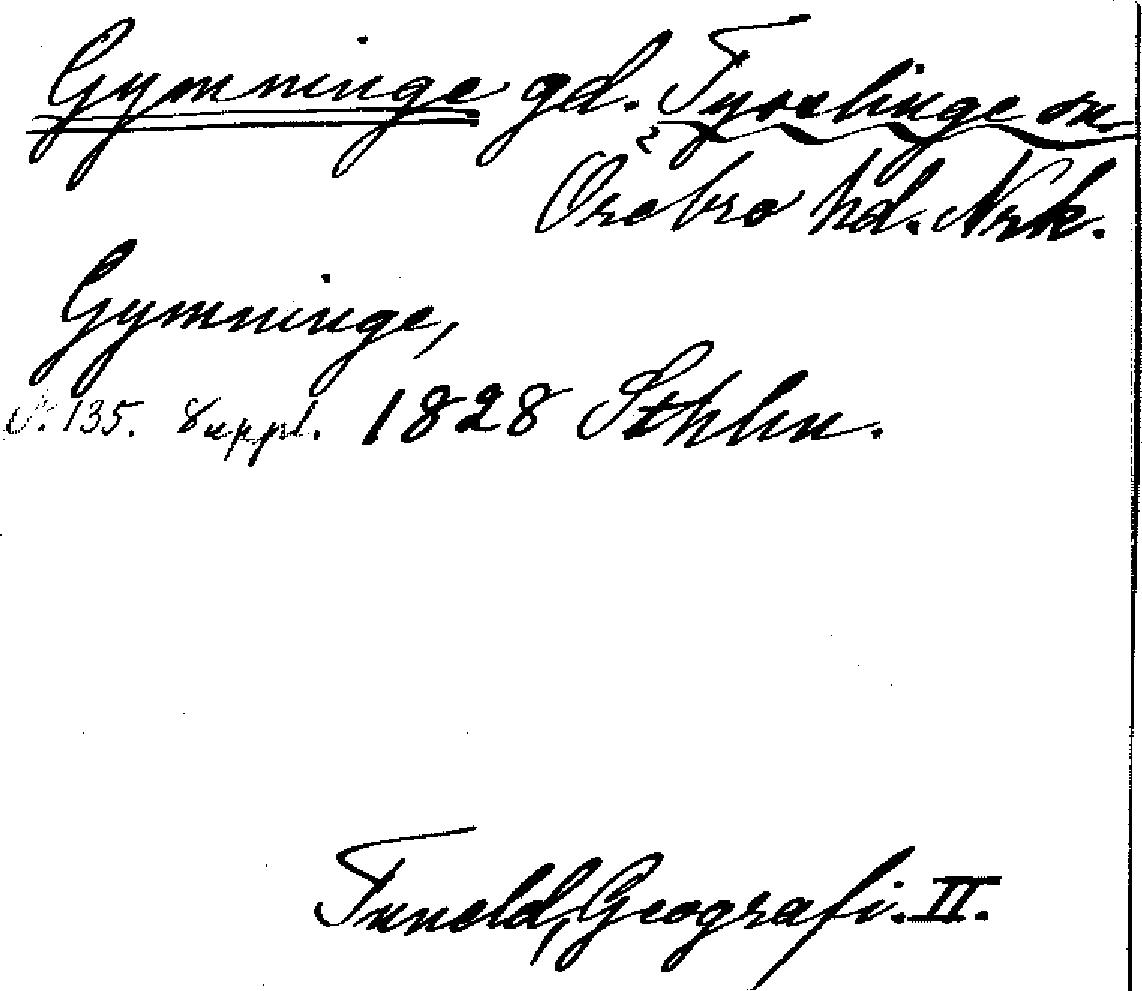 Gymninge gd. Tysslinge sn.
Örebro hd. Nrk.
Gymninge,
S. 135. Suppl. 1828 Sthlm.
Tuneld, Geografi. II.